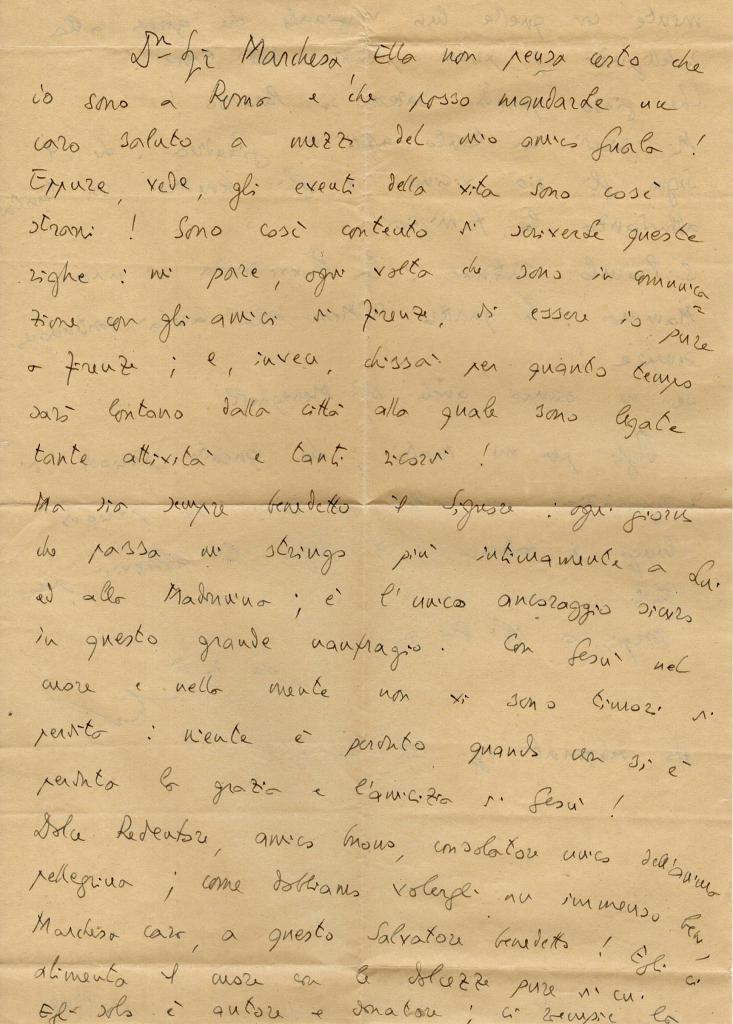 Dn Sgr Marchesa Ella non pensa certo che
io sono a Roma e che posso mandarle un
caro saluto a mezzo del mio amico Guala !
Eppure, vede, gli eventi della vita sono così
strani ! Sono così contento di scriverle queste
righe : mi pare, ogni volta che sono in comunica=
zione con gli amici di Firenze, di essere io pure
a Firenze ; e, invece, chissà per quanto tempo
sarò lontano dalla città alla quale sono legate
tante attività e tanti ricordi !
Ma sia sempre benedetto il Signore : ogni giorno
che passa mi stringo più intimamente a Lui
ed alla Madonnina ; è l'unico ancoraggio sicuro
in questo grande naufragio . Con Gesù nel
cuore e nella mente non vi sono timori di
perdita : niente è perduto quando non si è
perduta la grazia e l'amicizia di Gesù !
Dolce Redentore, amico buono, consolatore unico dell'anima
pellegrina ; come dobbiamo volergli un immenso bene,
Marchesa cara, a questo Salvatore benedetto ! Egli ci
alimenta il cuore con le dolcezze pure di cui
Egli solo è autore e donatore ; ci riempie la